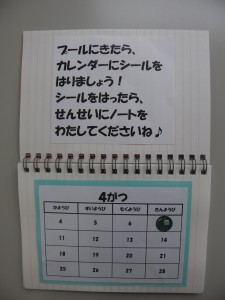 プールにきたら、
カレンダーにシールを
はりましょう！
シールをはったら、
せんせいにノートを
わたしてくださいね♪
4がつ
かようび すいようび もくようび きんようび
4 5 6
11 12 13 14
18 19 20 21
25 26 27 28